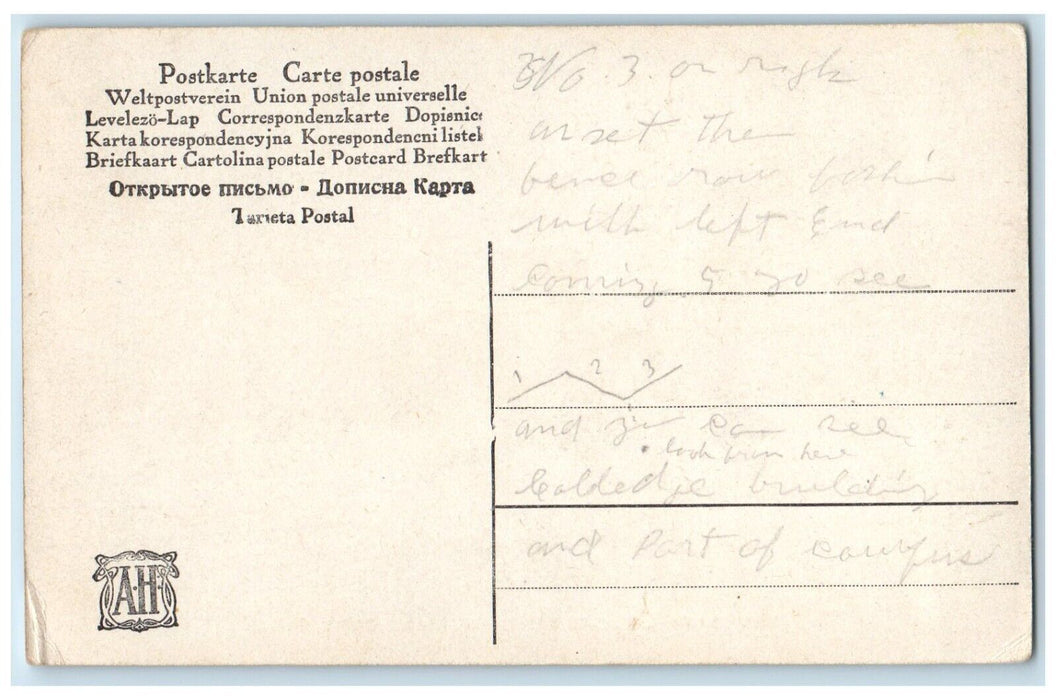 Postkarte Carte postale
Weltpostverein Union postale universelle
Levelezö-Lap Correspondenzkarte Dopisnice
Karta korespondencyjna Korespondencni listek
Briefkaart Cartolina postale Postcard Brefkort
Открытое письмо - Дописна Карта
Tarjeta Postal
A·H
No 3 on right
set the
row
with left End
go see
1 2 3
and you can see
look from here
building
and Part of campus